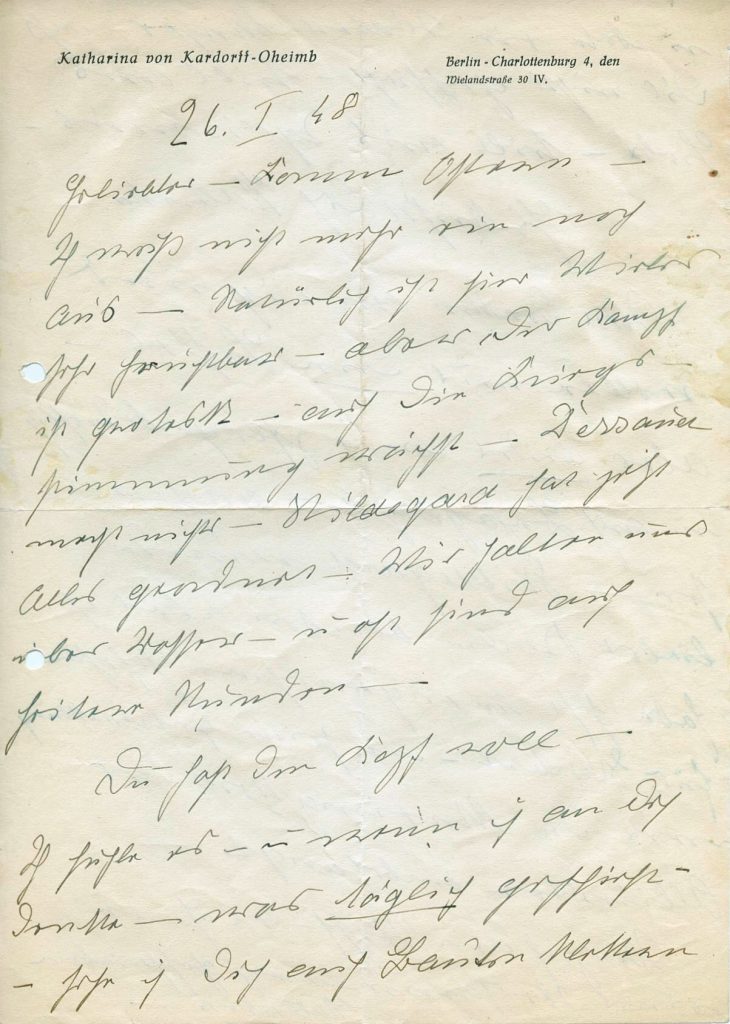 Katharina von Kardorff-Oheimb
Berlin-Charlottenburg 4, den
Wielandstraße 30 IV.
26. I 48
Geliebter – komm Ostern –
Ich weiß nicht mehr ein noch
aus – Natürlich ist hier
sehr furchtbar – aber der Kampf
ist grotesk – auch die Kriegs-
stimmung wächst – Dessauer
macht nichts – Hildegard hat jetzt
Alles geordnet – Wir halten uns
über Wasser – u oft sind auch
heitere Stunden –
Du hast den Kopf voll –
Ich fühle es – u wenn ich an Dich
denke – was täglich geschieht –
– sehe ich Dich auf